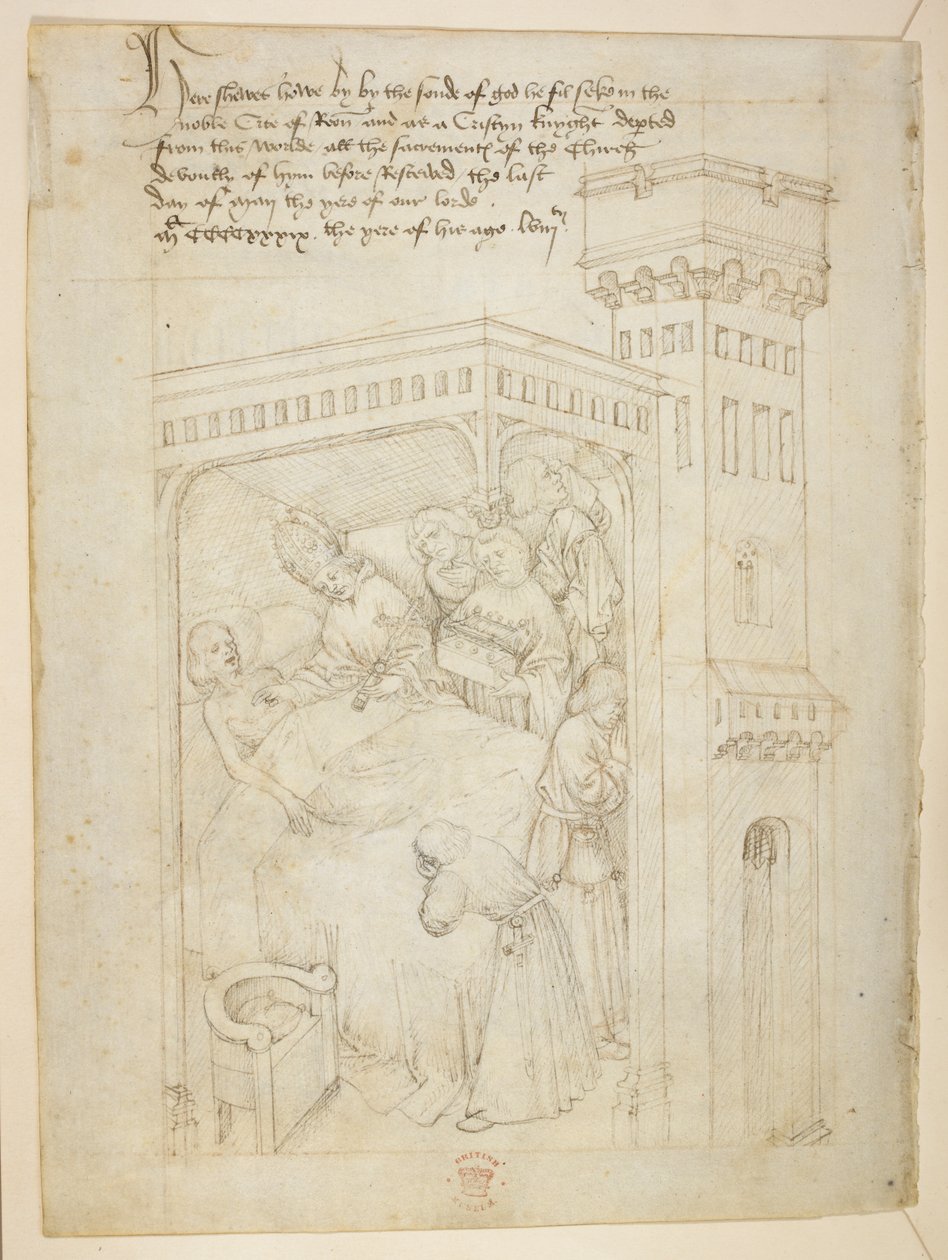 Here shewes howe by by the sonde of god he fil seke in the
noble Cite of Reon and as a Cristyn knyght depted
from this worlde all the sacrements of the Church
devoutly of hym before Resceived the last
day of may the yere of our lorde
M CCCCxxxix. the yere of his age. lviij
BRITISH
MUSEUM